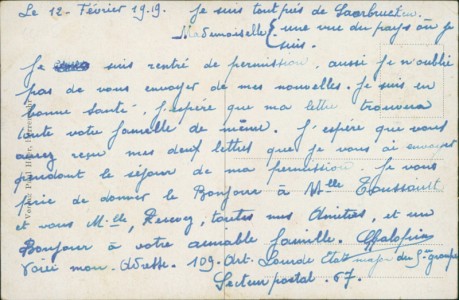 Le 12 - Février 19.19. Je suis tout près de Saarbrucken.
Mademoiselle, une vue du pays où je
suis.
Je suis rentré de permission, aussi je n'oublié
pas de vous envoyer de mes nouvelles. Je suis en
bonne santé, j'espère que ma lettre trouvera
toute votre famille de même. J'espère que vous
aurez reçue mes deux lettres que je vous ai envoyer
pendant le séjour de ma permission. Je vous
prie de donner le Bonjour à Mlle Toussault
et vous Mlle, Recevez, toutes mes Amitiés, et un
Bonjour à votre aimable famille.
Voici mon Adresse. 109. Art. Lourde Etat major du 5e groupe
Secteur postal. 67.